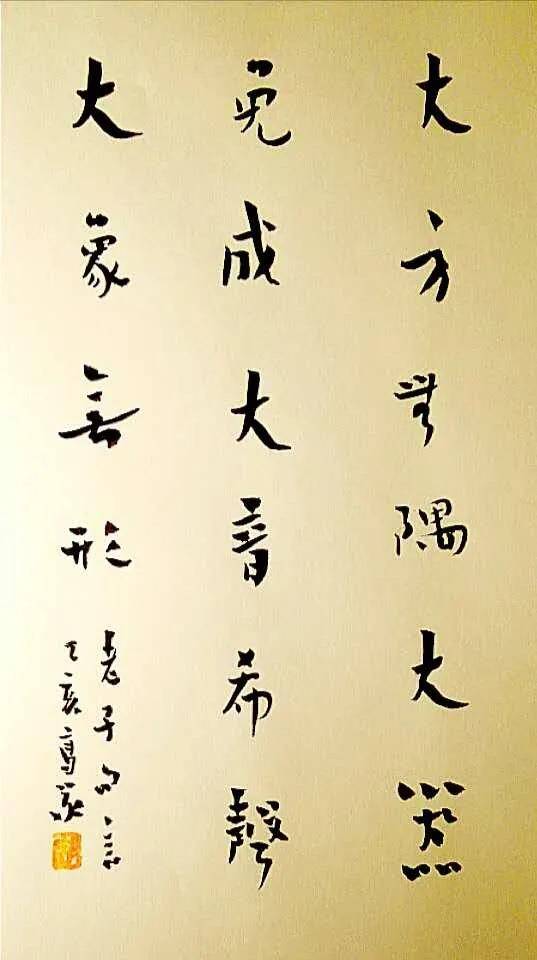 大方無隅大器
免成大音希聲
大象無形
老子言
丁亥